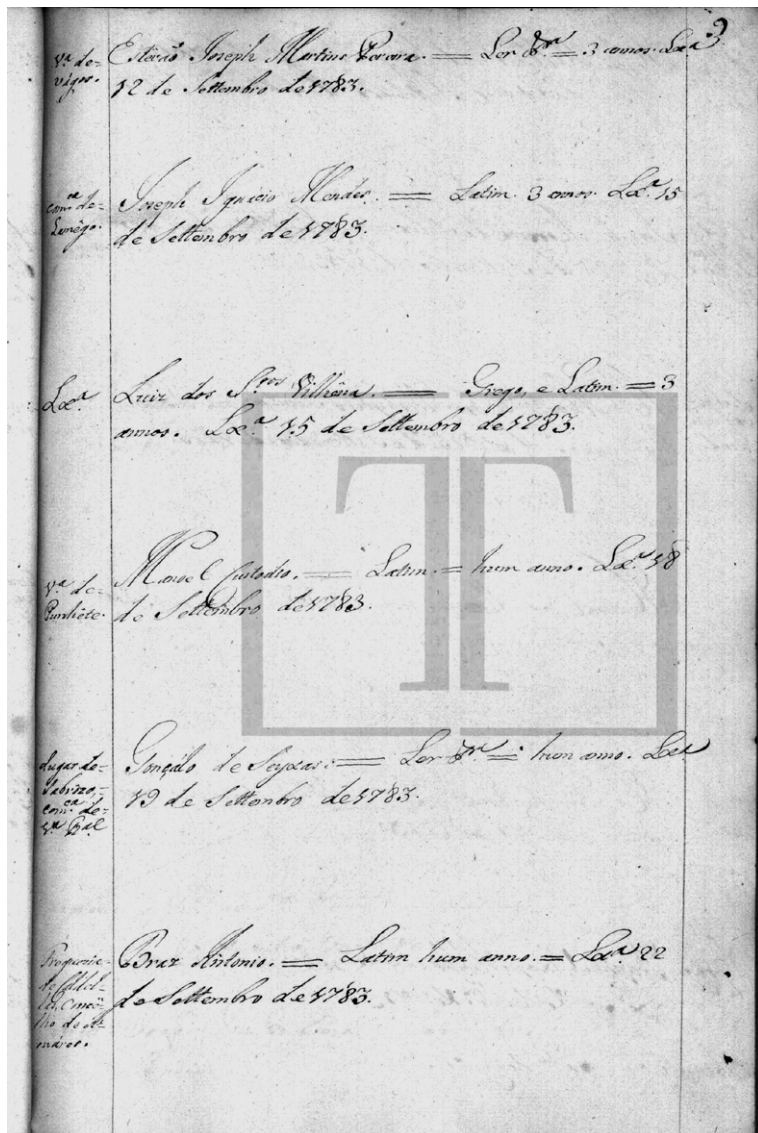 9
V.ª de-
vigo.
Estevão Joseph Martins = Ler &.ª = 3 annos. Lx.ª
12 de Settembro de 1783.
com.ca de-
Lamêgo.
Joseph Ignacio Mendes. = Latim. 3 annos. Lx.ª 15
de Settembro de 1783.
Lx.ª
Luiz dos S.tos Vilhêna. = Grego, e Latim. = 3
annos. Lx.ª 15 de Settembro de 1783.
V.ª de-
Punhéte.
Manoel Custodio. = Latim. = hum anno. Lx.ª 18
de Settembro de 1783.
Lugar de-
Sabrozo,-
com.ca de-
V.ª R.al
Gonçálo de = Ler &.ª = hum anno. Lx.ª
19 de Settembro de 1783.
Freguezia-
de
Concê-
lho de A-
máres.
Braz Antonio. = Latim hum anno. = Lx.ª 22
de Settembro de 1783.